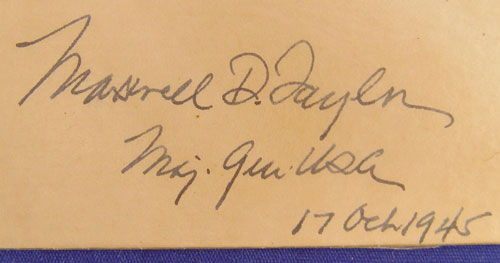 Maxwell D. Taylor
Maj. Gen. USA
17 Oct 1945